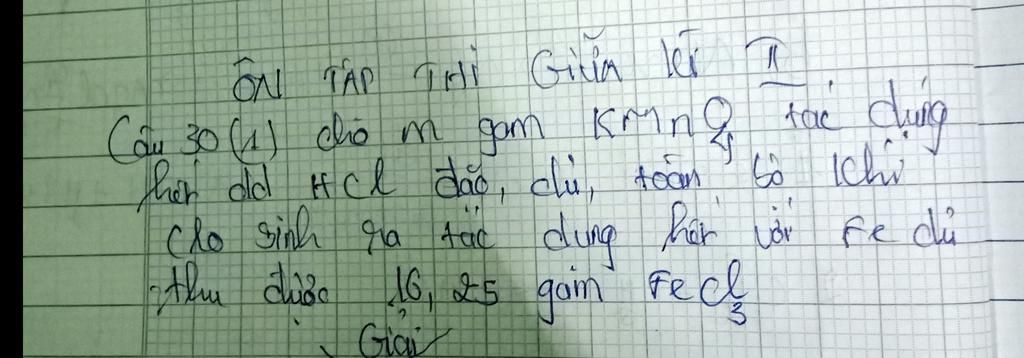 ÔN TẬP THI GIỮA KÌ II
Câu 30 (1) cho m gam KMnO4 tác dụng
hết dd HCl đặc, dư, toàn bộ khí
Clo sinh ra tác dụng hết với Fe dư
thu được 16,25 gam FeCl3
Giải